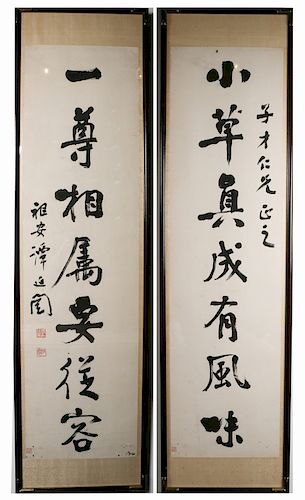 小草真成有風味
子才仁兄正之
一尊相属要從容
祖安譚延闓